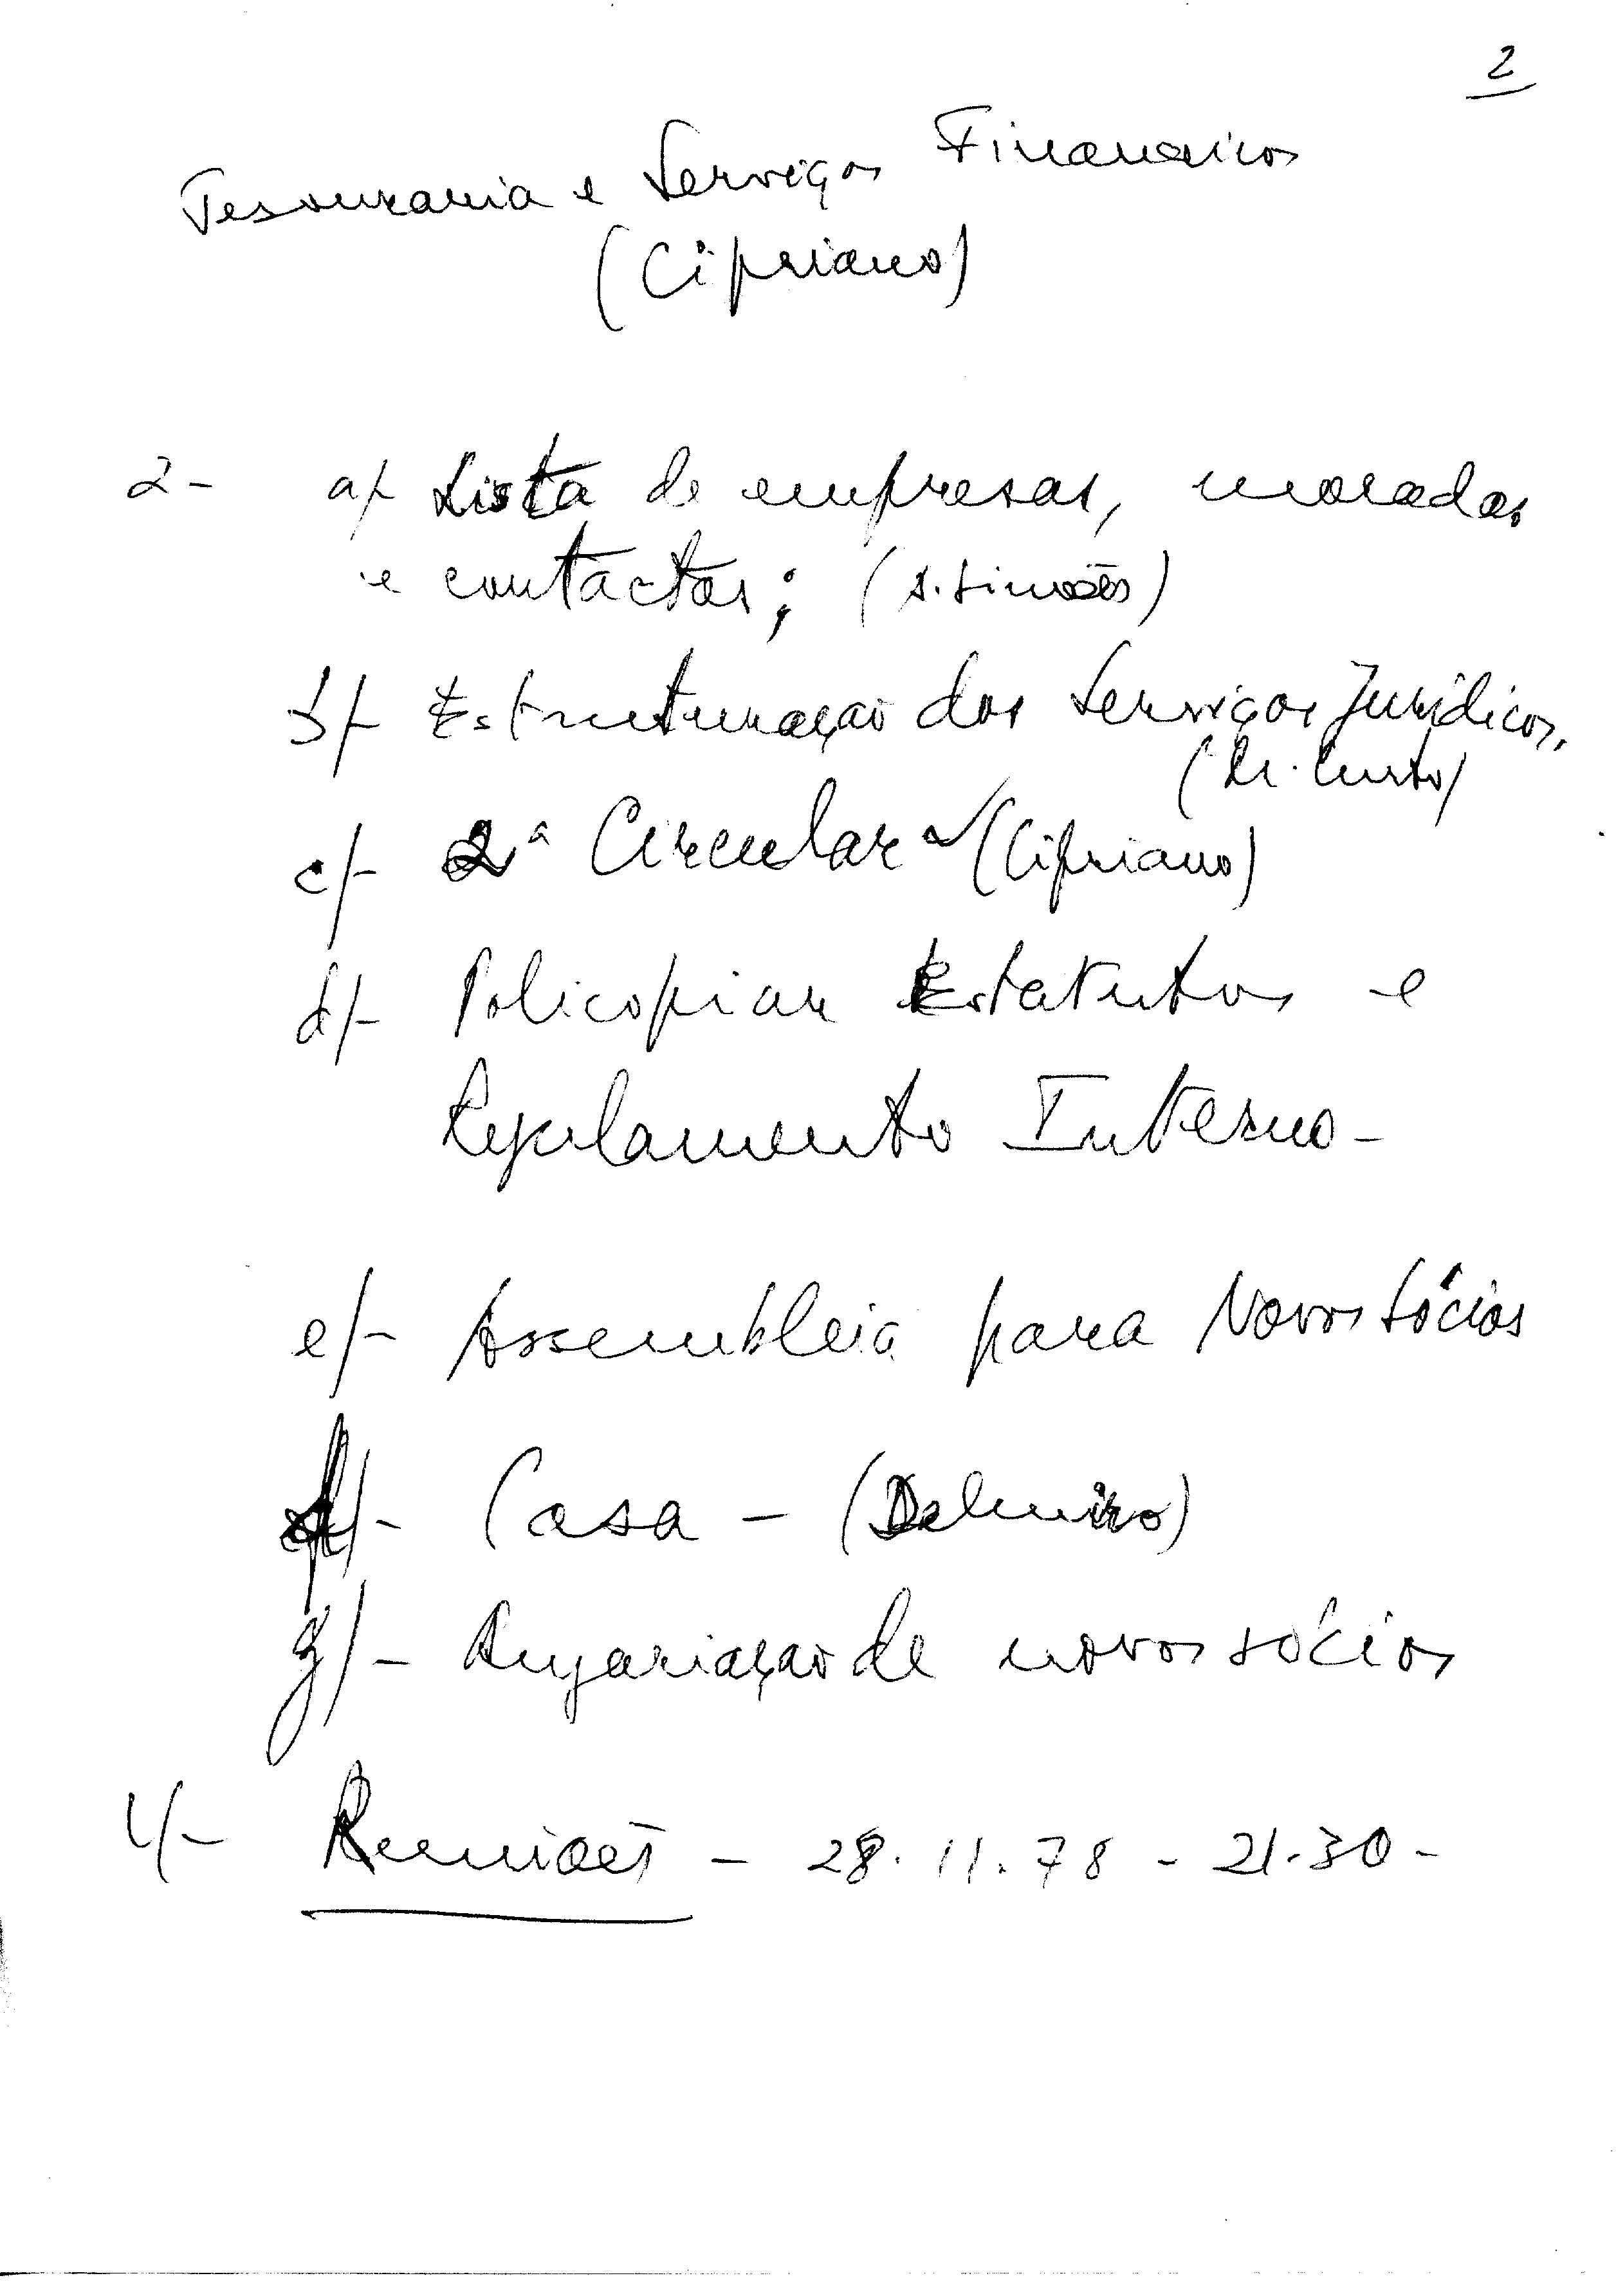 2
Tesouraria e Serviços Financeiros
(Cipriano)
2- a/- Lista de empresas, moradas
e contactos; (S. Simões)
b/- Estruturação dos Serviços Jurídicos,
(Dr. Curto)
c/- 2ª Circular (Cipriano)
d/- Policopiar Estatutos e
Regulamento Interno-
e/- Assembleia para Novos Sócios
f/- Casa - (Delmiro)
g/- Angariação de novos sócios
4/- Reuniões - 28.11.78 - 21.30-